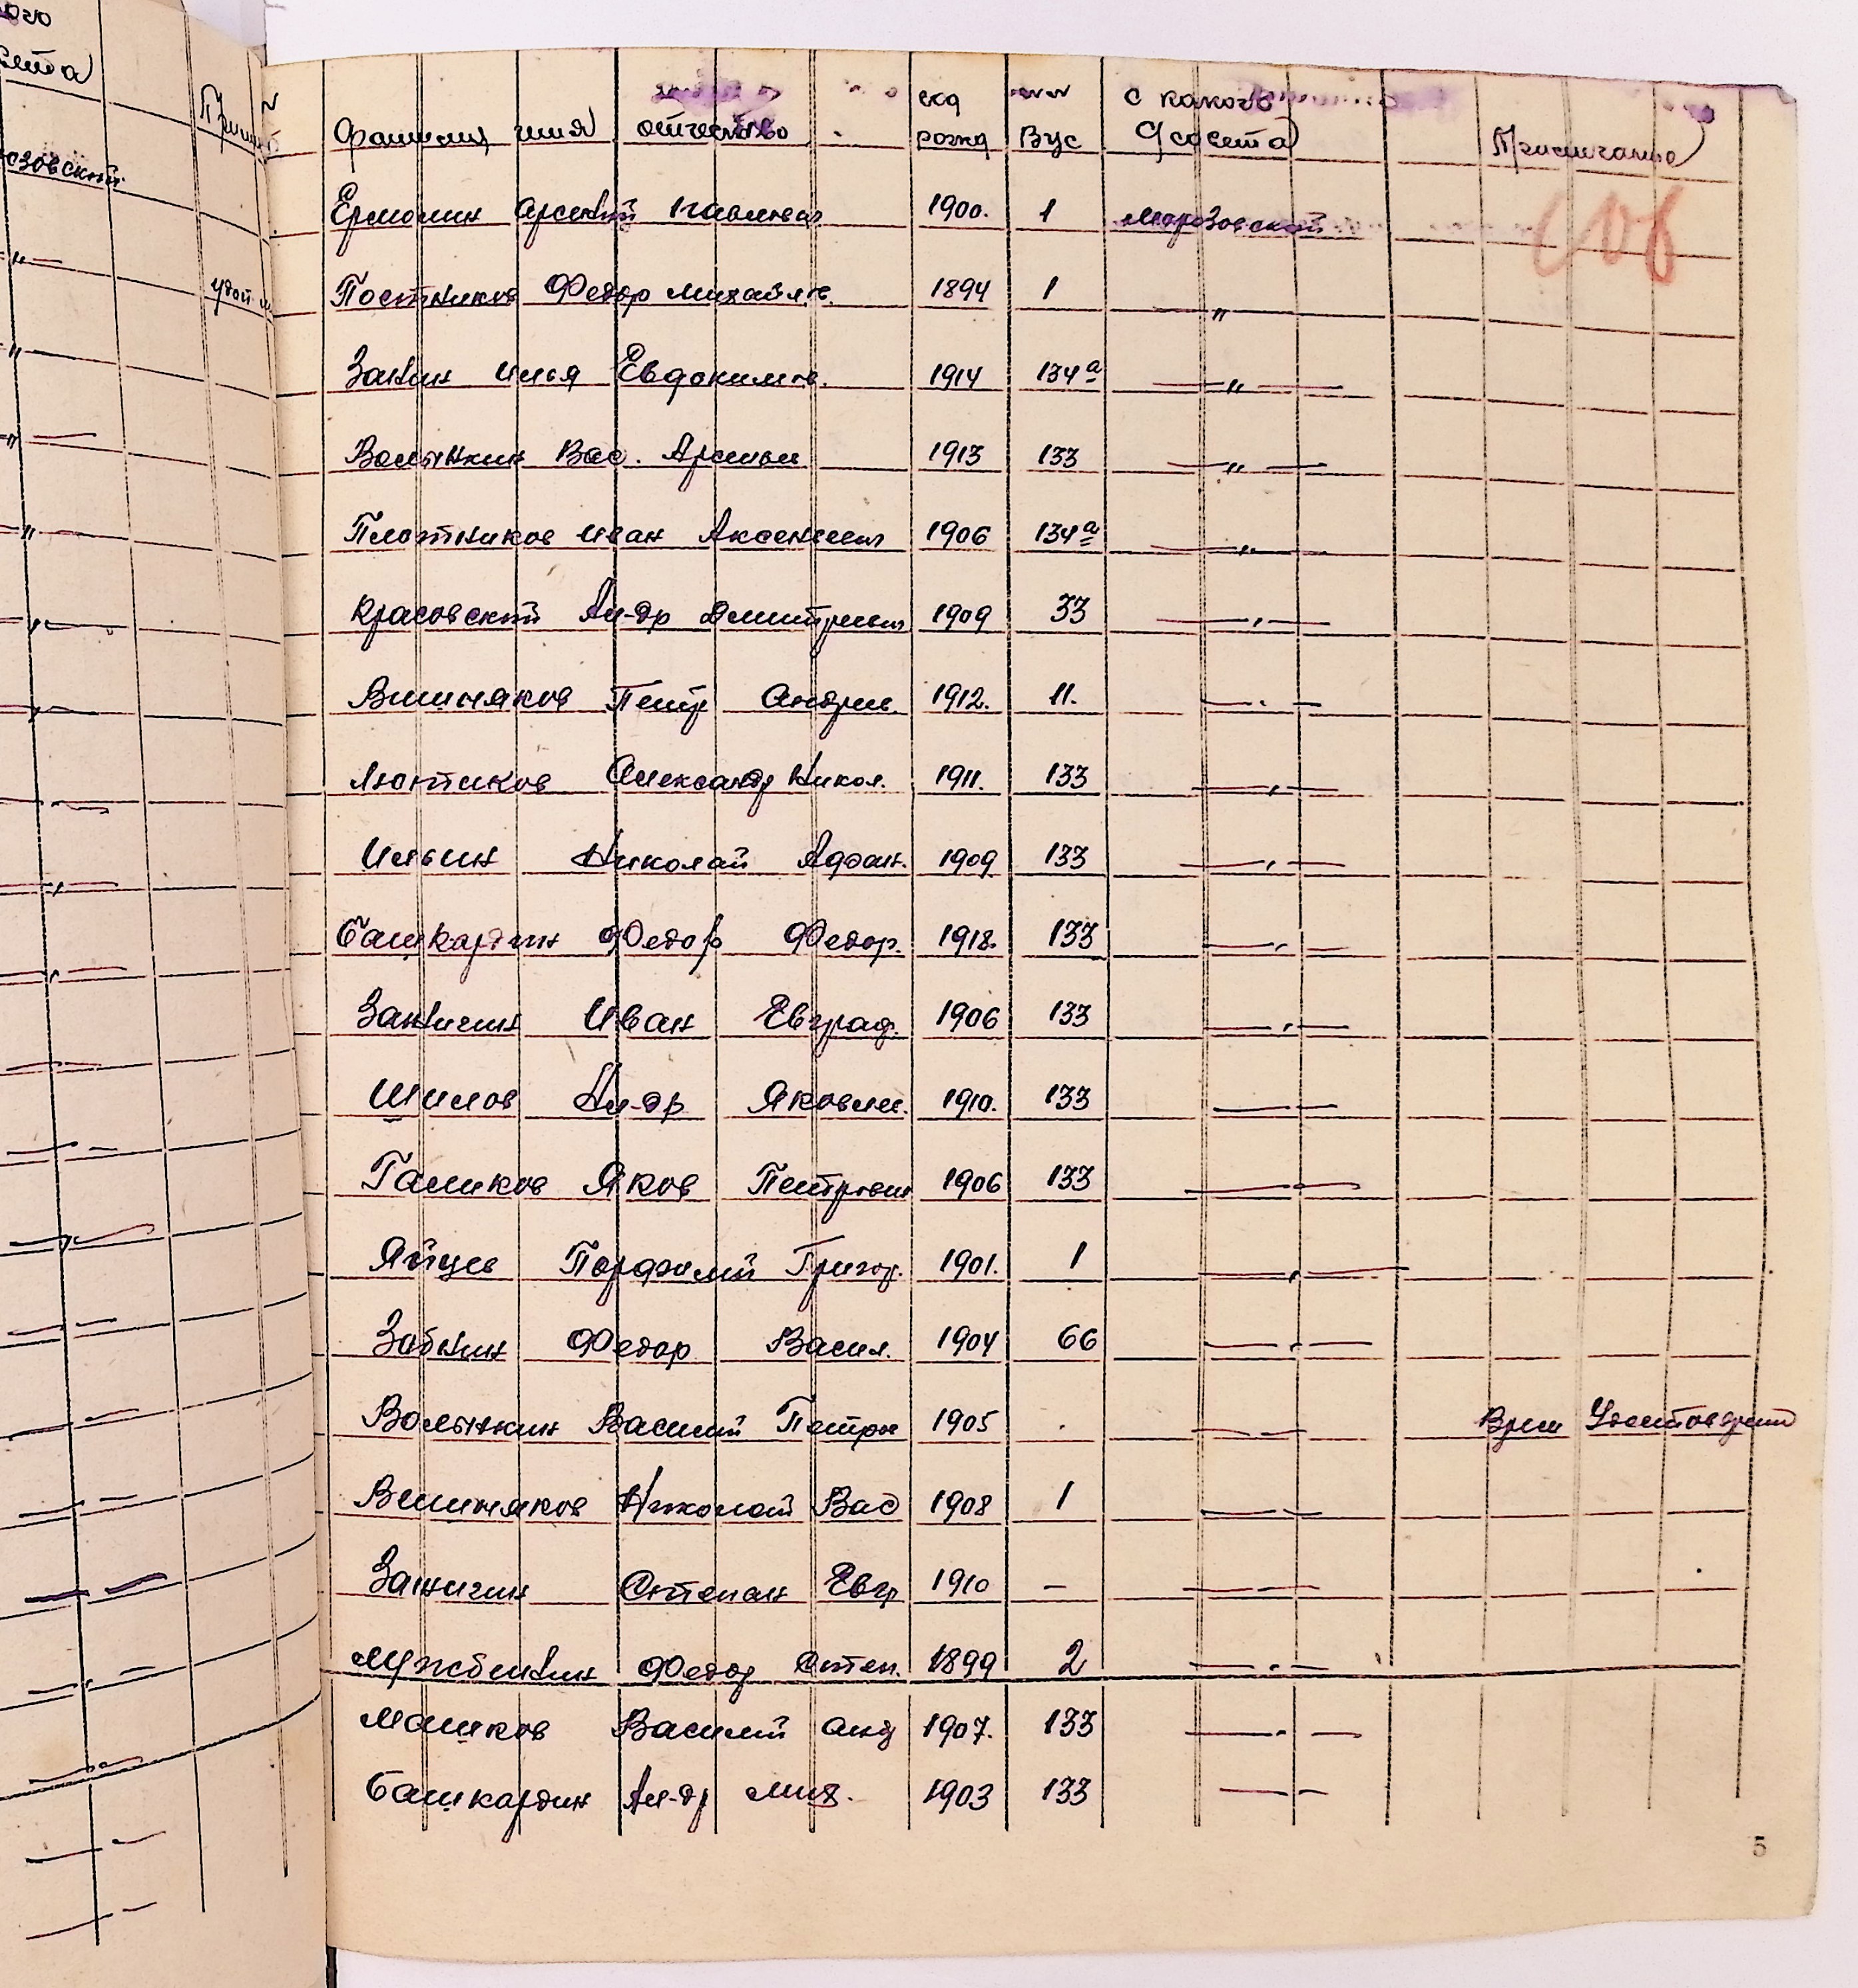 ого
сета
Прим
озовский
"
"
"
"
Фамилия имя отчество год рожд ВУС с какого с/совета Примечание
Ермолин Арсений Павлович 1900. 1 Морозовский
Постников Федор Михайлов. 1894 1 "
Занин Илья Евдокимов. 1914 134а "
Волынкин Вас. Арсеньи 1913 133 "
Плотников Иван Аксенович 1906 134а "
Красовский Ал-др Дмитриевич 1909 33 "
Вишняков Петр Андрее. 1912. 11. "
Лютиков Александр Никол. 1911. 133 "
Ильин Николай Афан. 1909 133 "
Башкардин Федор Федор. 1918. 133 "
Занигин Иван Евграф. 1906 133 "
Шилов Ал-др Яковлев. 1910. 133 —
Галиков Яков Петрович 1906 133 "
Яйцев Парфилий Григор. 1901. 1 "
Забнин Федор Васил. 1904 66 "
Волынкин Василий Петров 1905 . — Врем
Вишняков Николай Вас 1908 1 —
Занигин Степан Евгр 1910 — —
Федор Степ. 1899 2 "
Машков Василий Анд 1907. 133 "
Башкардин Ал-др Мих. 1903 133 "
5